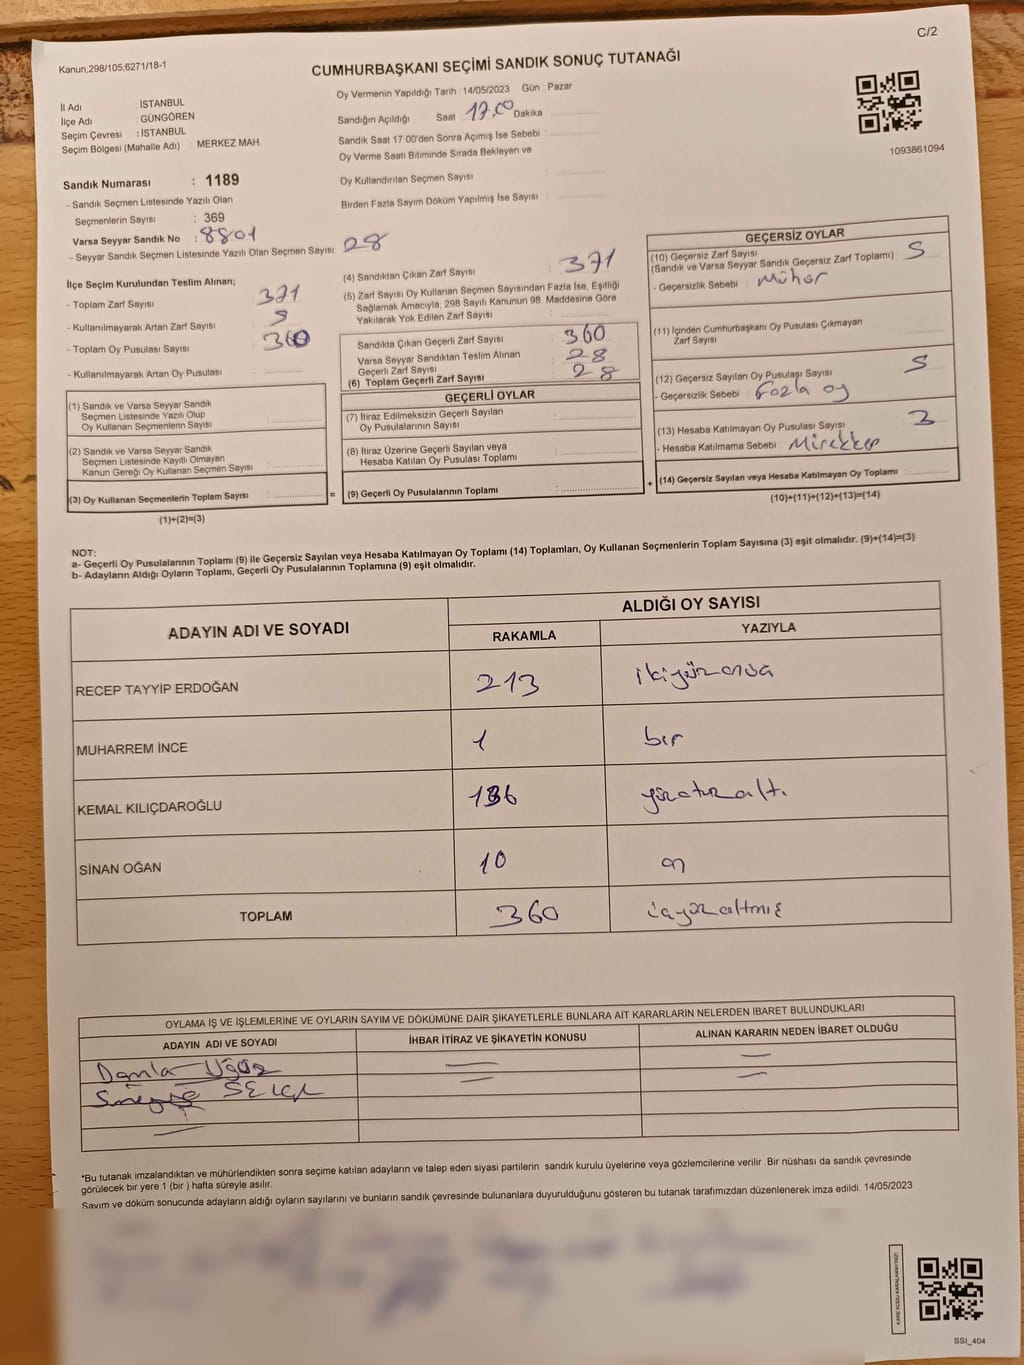 C/2
Kanun;298/105;6271/18-1
CUMHURBAŞKANI SEÇİMİ SANDIK SONUÇ TUTANAĞI
İl Adı : İSTANBUL
İlçe Adı : GÜNGÖREN
Seçim Çevresi : İSTANBUL
Seçim Bölgesi (Mahalle Adı) : MERKEZ MAH.
Oy Vermenin Yapıldığı Tarih : 14/05/2023 Gün : Pazar
Sandığın Açıldığı Saat 17.00 Dakika :
Sandık Saat 17:00'den Sonra Açımış İse Sebebi :
Oy Verme Saati Bitiminde Sırada Bekleyen ve
Oy Kullandırılan Seçmen Sayısı :
Birden Fazla Sayım Döküm Yapılmış İse Sayısı :
1093861094
Sandık Numarası : 1189
- Sandık Seçmen Listesinde Yazılı Olan
Seçmenlerin Sayısı : 369
Varsa Seyyar Sandık No : 8801
- Seyyar Sandık Seçmen Listesinde Yazılı Olan Seçmen Sayısı: 28
İlçe Seçim Kurulundan Teslim Alınan;
- Toplam Zarf Sayısı : 371
- Kullanılmayarak Artan Zarf Sayısı : 5
- Toplam Oy Pusulası Sayısı : 360
- Kullanılmayarak Artan Oy Pusulası :
(1) Sandık ve Varsa Seyyar Sandık
Seçmen Listesinde Yazılı Olup
Oy Kullanan Seçmenlerin Sayısı :
(2) Sandık ve Varsa Seyyar Sandık
Seçmen Listesinde Kayıtlı Olmayan
Kanun Gereği Oy Kullanan Seçmen Sayısı :
(3) Oy Kullanan Seçmenlerin Toplam Sayısı :
(1)+(2)=(3)
(4) Sandıktan Çıkan Zarf Sayısı : 371
(5) Zarf Sayısı Oy Kullanan Seçmen Sayısından Fazla İse, Eşitliği
Sağlamak Amacıyla, 298 Sayılı Kanunun 98. Maddesine Göre
Yakılarak Yok Edilen Zarf Sayısı :
Sandıkta Çıkan Geçerli Zarf Sayısı : 360
Varsa Seyyar Sandıktan Teslim Alınan
Geçerli Zarf Sayısı : 28
(6) Toplam Geçerli Zarf Sayısı : 28
GEÇERLİ OYLAR
(7) İtiraz Edilmeksizin Geçerli Sayılan
Oy Pusulalarının Sayısı :
(8) İtiraz Üzerine Geçerli Sayılan veya
Hesaba Katılan Oy Pusulası Toplamı :
= (9) Geçerli Oy Pusulalarının Toplamı :
GEÇERSİZ OYLAR
(10) Geçersiz Zarf Sayısı
(Sandık ve Varsa Seyyar Sandık Geçersiz Zarf Toplamı) : 5
- Geçersizlik Sebebi : Mühür
(11) İçinden Cumhurbaşkanı Oy Pusulası Çıkmayan
Zarf Sayısı :
(12) Geçersiz Sayılan Oy Pusulası Sayısı : 5
- Geçersizlik Sebebi : Fazla oy
(13) Hesaba Katılmayan Oy Pusulası Sayısı : 3
- Hesaba Katılmama Sebebi : Mürekkep
+ (14) Geçersiz Sayılan veya Hesaba Katılmayan Oy Toplamı :
(10)+(11)+(12)+(13)=(14)
NOT:
a- Geçerli Oy Pusulalarının Toplamı (9) ile Geçersiz Sayılan veya Hesaba Katılmayan Oy Toplamı (14) Toplamları, Oy Kullanan Seçmenlerin Toplam Sayısına (3) eşit olmalıdır. (9)+(14)=(3)
b- Adayların Aldığı Oyların Toplamı, Geçerli Oy Pusulalarının Toplamına (9) eşit olmalıdır.
ADAYIN ADI VE SOYADI
ALDIĞI OY SAYISI
RAKAMLA YAZIYLA
RECEP TAYYİP ERDOĞAN 213
MUHARREM İNCE 1 bir
KEMAL KILIÇDAROĞLU 136 yüzotuzaltı
SİNAN OĞAN 10 on
TOPLAM 360 üçyüzaltmış
OYLAMA İŞ VE İŞLEMLERİNE VE OYLARIN SAYIM VE DÖKÜMÜNE DAİR ŞİKAYETLERLE BUNLARA AİT KARARLARIN NELERDEN İBARET BULUNDUKLARI
ADAYIN ADI VE SOYADI İHBAR İTİRAZ VE ŞİKAYETİN KONUSU ALINAN KARARIN NEDEN İBARET OLDUĞU
Damla
*Bu tutanak imzalandıktan ve mühürlendikten sonra seçime katılan adayların ve talep eden siyasi partilerin sandık kurulu üyelerine veya gözlemcilerine verilir. Bir nüshası da sandık çevresinde
görülecek bir yere 1 (bir ) hafta süreyle asılır.
Sayım ve döküm sonucunda adayların aldığı oyların sayılarını ve bunların sandık çevresinde bulunanlara duyurulduğunu gösteren bu tutanak tarafımızdan düzenlenerek imza edildi. 14/05/2023
KARE KODU KARALAMAYINIZ!
SSI_404